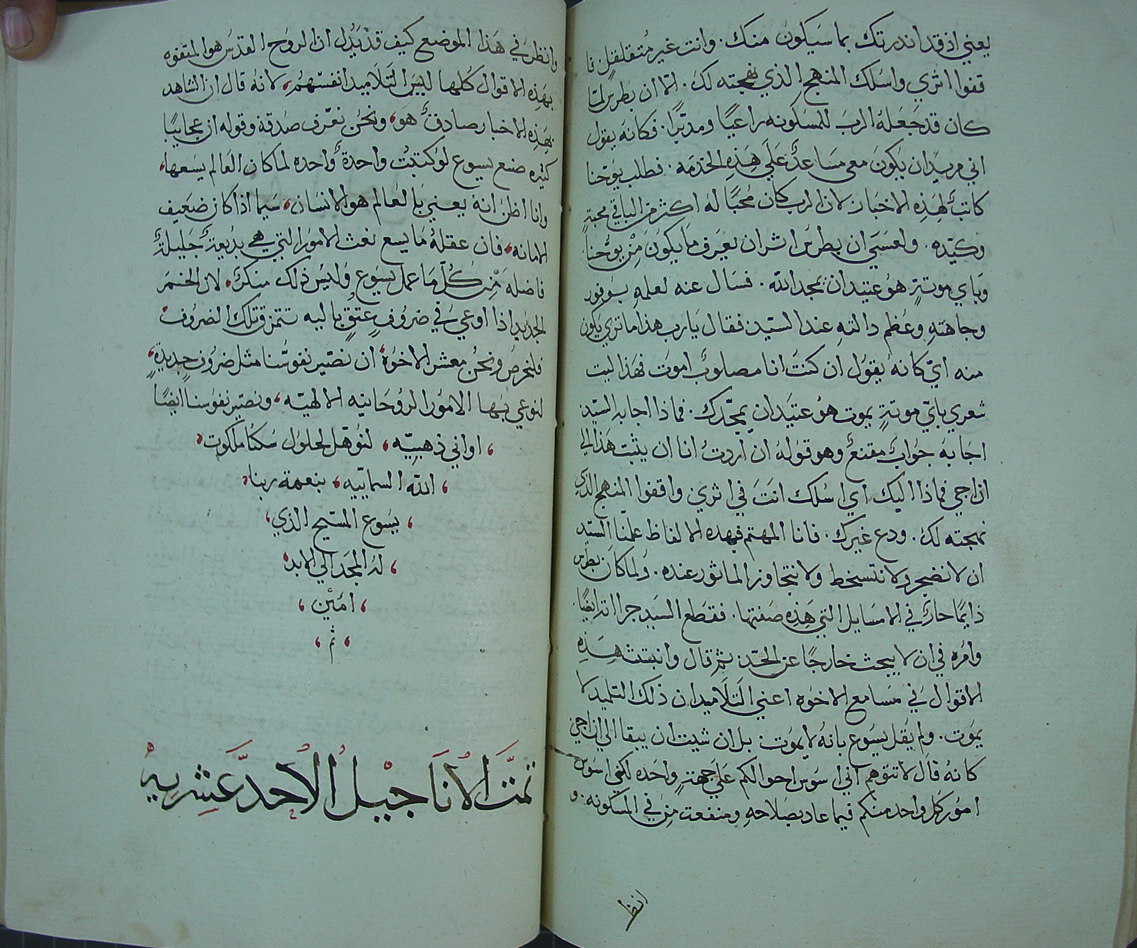 يعني اذ قد انذرتك بما سيكون منك. وانت غير متقلقل فا
قفوا اثري واسلك المنهج الذي نهجته لك. الا ان بطرس لما
كان قد جعله الرب للمسكونه راعيًا ومدبرًا. فكانه يقول
اني مريد ان يكون معي مساعد علي هذه الخدمه. فطلب يوحنا
كاتب هذه الاخبار لان الرب كان محبًا له اكثر من الباقي محبةٍ
وكيده. ولعسي ان بطرس اثر ان يعرف ما يكون من يوحنا
وباي موتةٍ هو عتيد ان يمجد الله. فسال عنه لعلمه بوفور
وجاهته وعظم دالته عند السيد فقال يارب هذا ما تري يكون
منه اي كانه يقول ان كنت انا مصلوبٌ اموت فهذا ليت
شعري باي موتةٍ يموت هو عتيد ان يمجدك. فماذا اجابه السيد
اجابه جواب مقنع وهو قوله ان اردت انا ان يثبت هذا الي
ان اجي فماذا اليك اي اسلك انت في اثري واقفوا المنهج الذي
نهجته لك. ودع غيرك. فانا المهتم فبهذه الالفاظ علمنا السيد
ان لا نضجر ولا نتسخط ولا نتجاوز الماثور عنده. ولما كان بطرس
دايمًا حارٌ في المسايل التي هذه صفتها. فقطع السيد حرارته ايضًا
وامره في ان لا يبحث خارجًا عن الحد. ثم قال وانبثت هذه
الاقوال في مسامع الاخوه اعني التلاميد ان ذلك التلميد لا
يموت. ولم يقل يسوع بانه لا يموت. بل ان شيت ان يبقا الي ان اجي
كانه قال لا تتوهم اني اسوس احوالكم علي جهةٍ واحده لكني اسوس
امور كل واحد منكم فيما عاد بصلاحه ومنفعت من في المسكونه. و
انظر
وانظر في هذا الموضع كيف قد يدل ان الروح القدس هو المتفوه
بهذه الاقوال كلها ليس التلاميد انفسهم، لانه قال ان الشاهد
بهذه الاخبار صادقٌ هو، ونحن نعرف صدقه وقوله ان عجايبًا
كثيره صنع يسوع لو كتبت واحدةً واحده لما كان العالم يسعها،
وانا اظن انه يعني بالعالم هو الانسان، سيما اذا كان ضعيف
الامانه، فان عقله ما يسع نعث الامور التي هي بديعةٌ جليلةٌ
فاضله من كل ما عمل يسوع وليس ذلك منكرٌ، لان الخمر
الجديد اذا اوعي في ضروف عتقٍ باليه تتمزق تلك الضروف
فلنحرص ونحن معشر الاخوة ان نصير نفوسنا مثل ضروف جديدةٍ،
لنوعي بها الامور الروحانيه الالهيه، ونصير نفوسنا ايضًا
، اواني ذهبيه، لنوهل لحلول سكنا ملكوت،
، الله السماييه، بنعمة ربنا،
، يسوع المسيح الذي،
، له المجد الي الابد،
، امين،
، ثم،
تمت الاناجيل الاحد عشريه